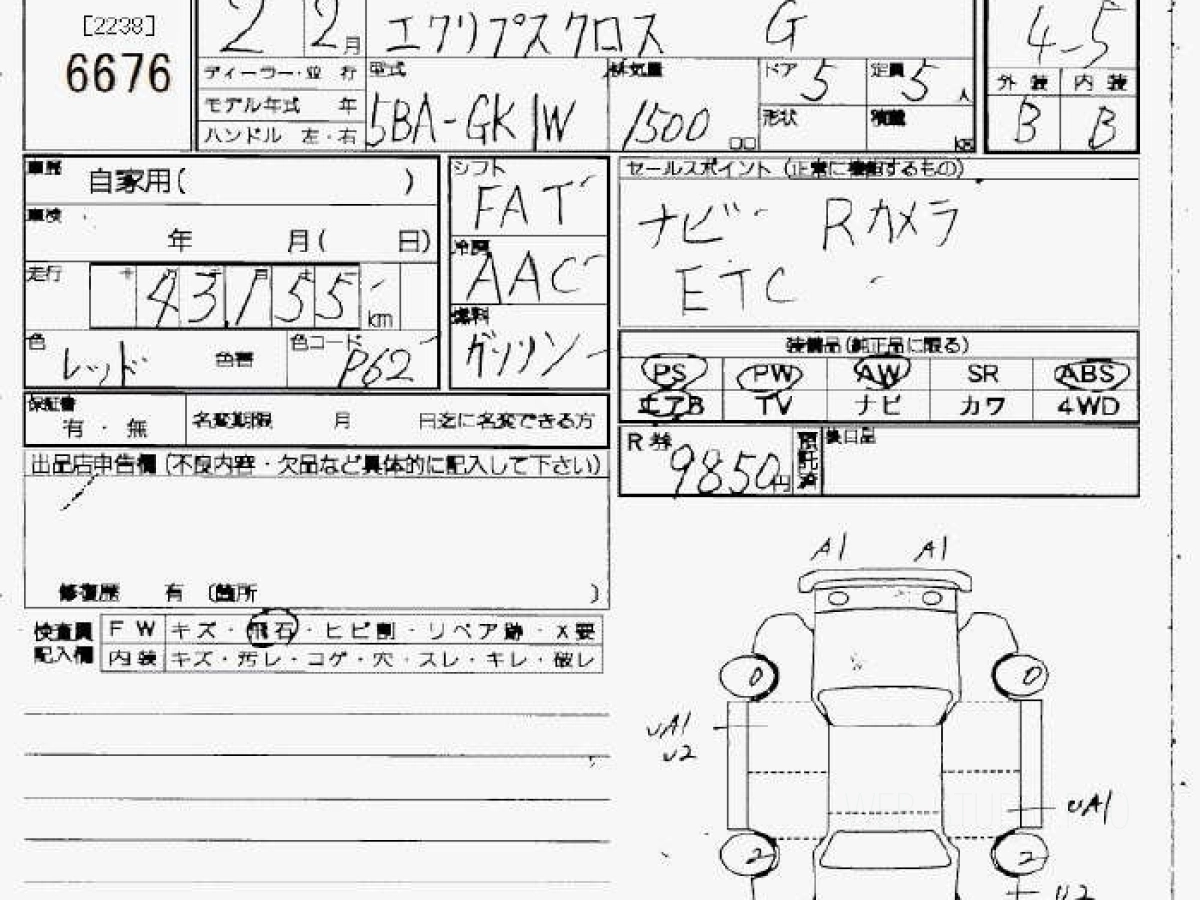 [2238]
6676
2 2月 エクリプスクロス G 4-5
ディーラー・並 行 型式 排気量 ドア 5 定員 5 人 外 装 内 装
モデル年式 年 5BA-GK1W 1500 形状 積載 B B
ハンドル 左・右
車歴 自家用( ) シフト FAT セールスポイント (正常に機能するもの)
車検 年 月( 日) 冷房 AAC ナビ Rカメラ
走行 43,155 km 燃料 ガソリン ETC
色 レッド 色番 色コード P62 装備品(純正品に限る)
PS PW AW SR ABS
エアB TV ナビ カワ 4WD
保証書 有 ・ 無 名変期限 月 日迄に名変できる方
R券 9850円 預託済 後日品
出品店申告欄 (不良内容・欠品など具体的に記入して下さい)
修復歴 有 〔箇所 〕
A1 A1
検査員 F W キズ・飛石・ヒビ割・リペア跡・X要
記入欄 内装 キズ・汚レ・コゲ・穴・スレ・キレ・破レ
0 0
UA1
U2
UA1
2 2
U2